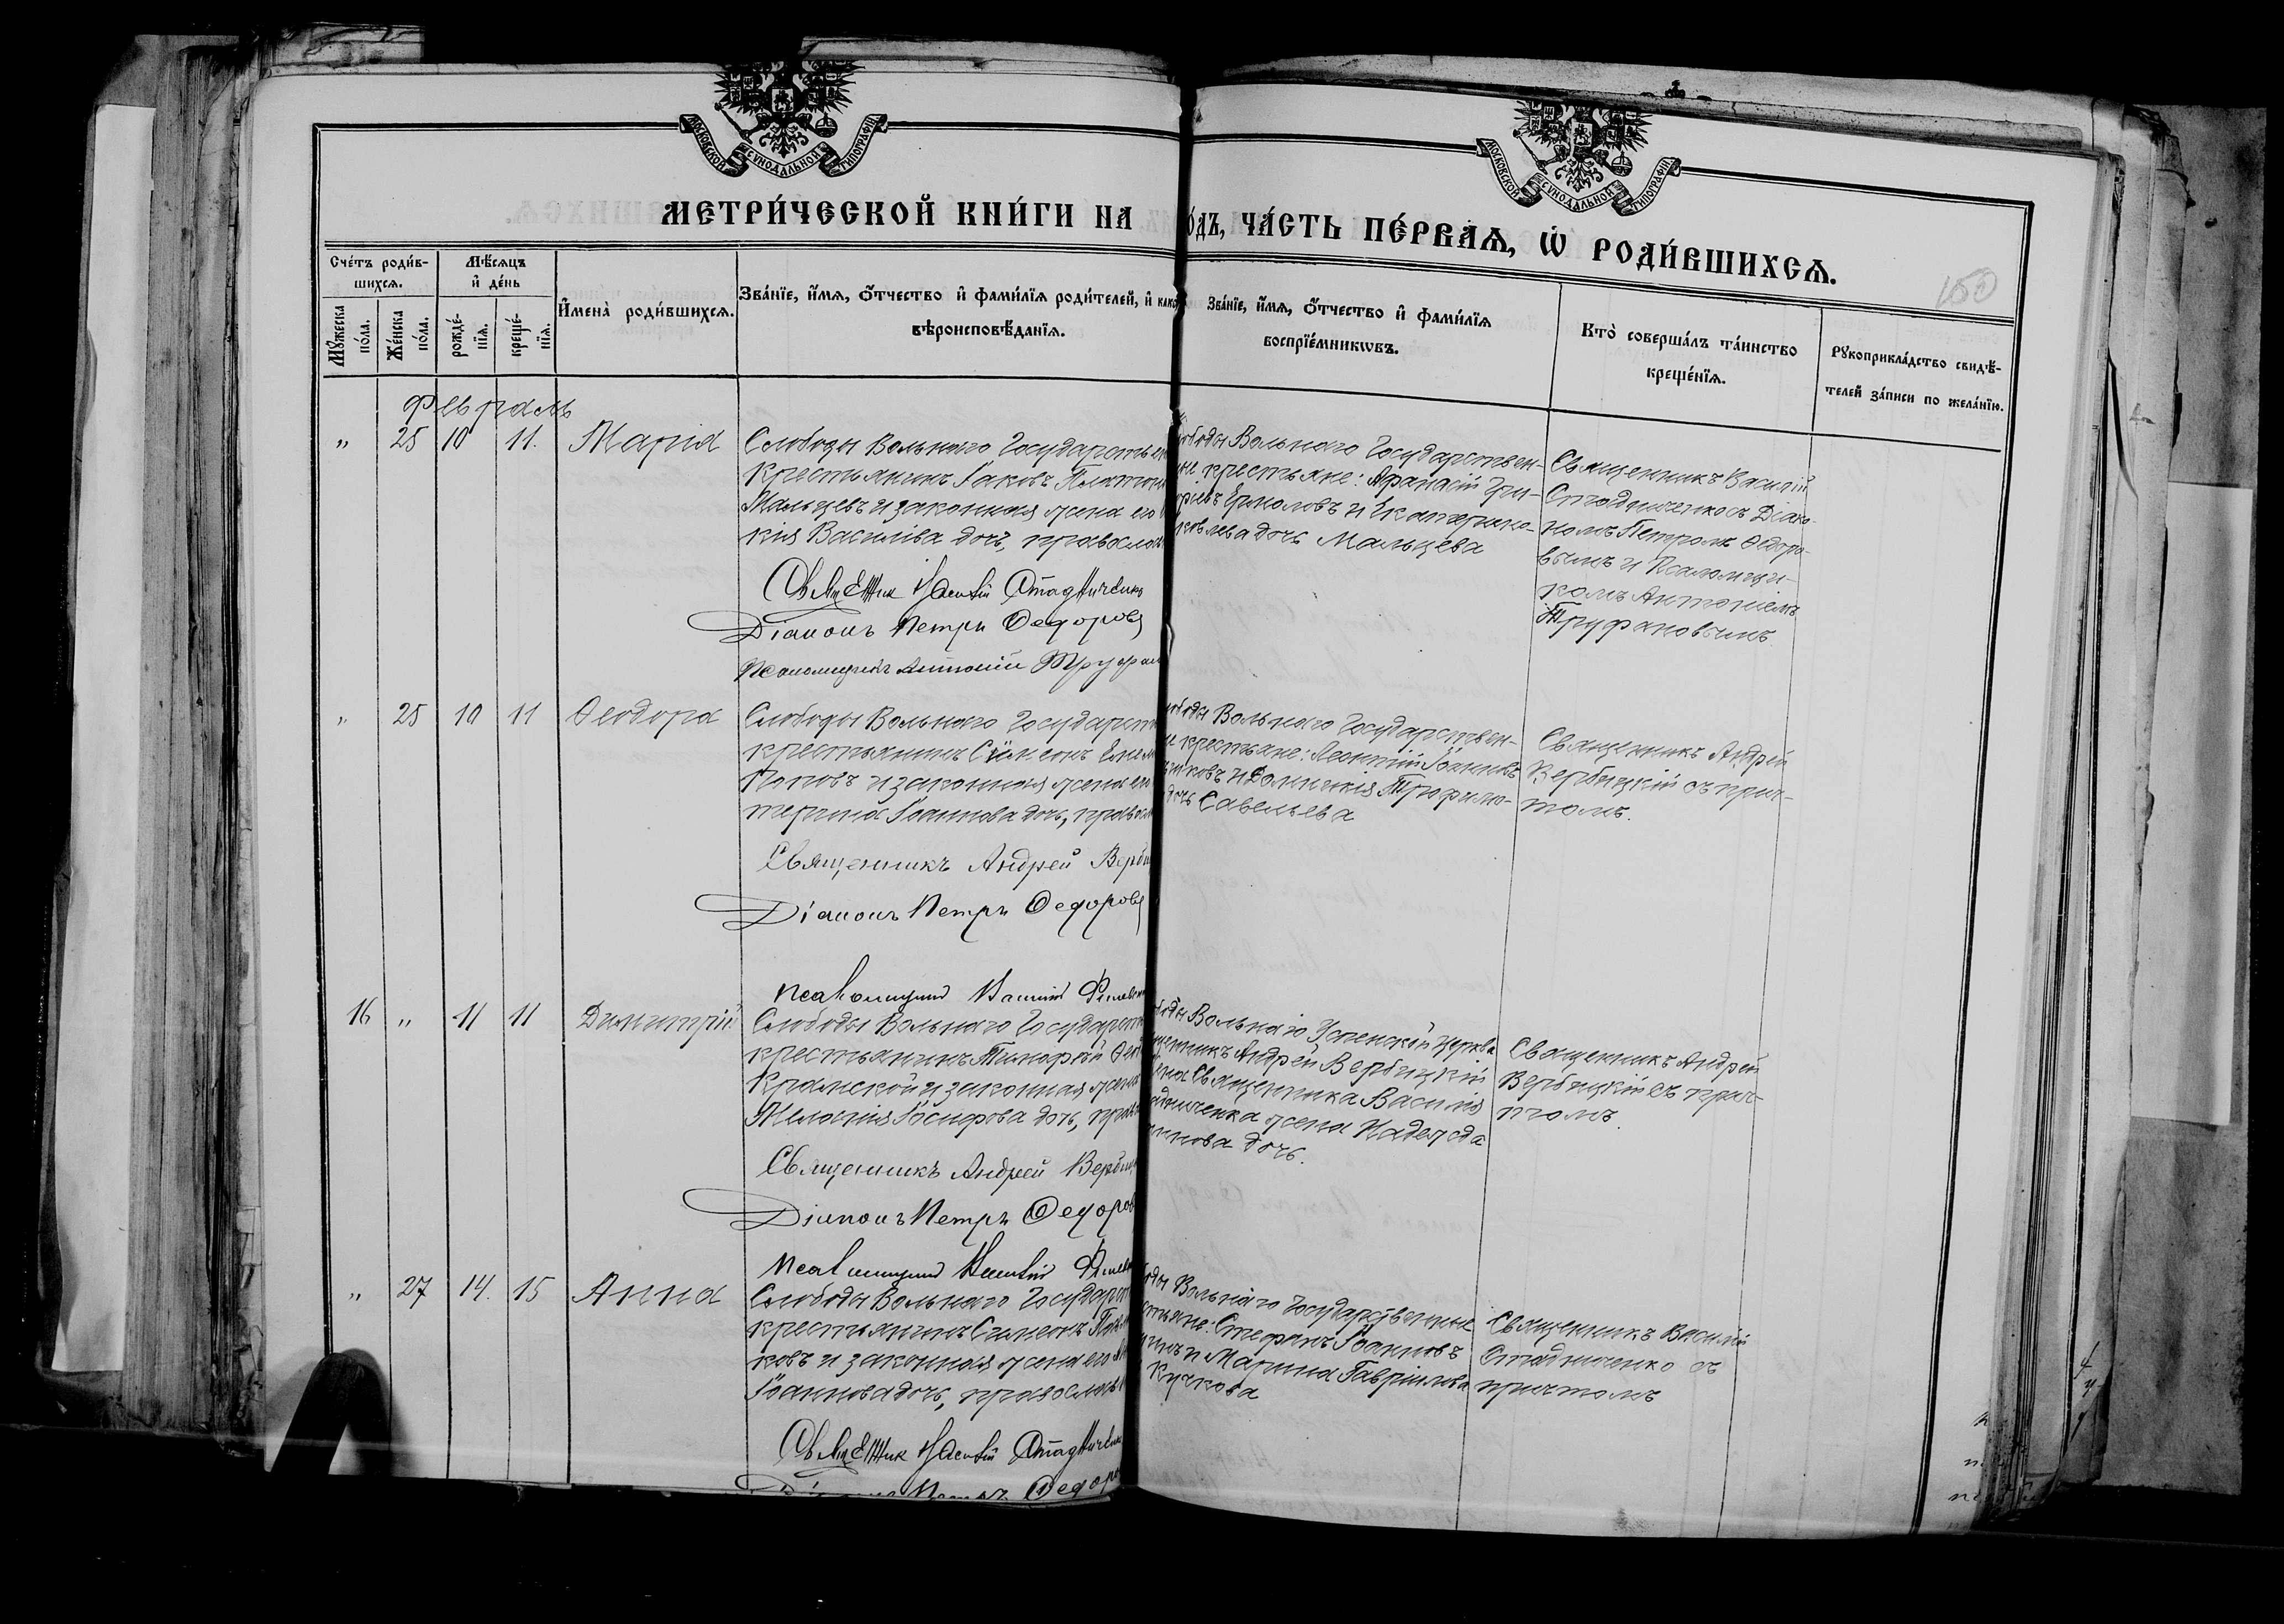 МОСКОВСКОЙ СѴНОДАЛЬНОЙ ТИПОГРАФІИ
МОСКОВСКОЙ СѴНОДАЛЬНОЙ ТИПОГРАФІИ
МЕТРИ́ЧЕСКОЙ КНИ́ГИ НА
О́ДЪ, ЧА́СТЬ ПЕ́РВАЯ, Ѡ҆ РОДИ́ВШИХСѦ.
150
Сче́тъ роди́в-
шихсѧ.
Мꙋ́жеска по́ла.
Же́нска по́ла.
Мѣ́сѧцъ
и҆ де́нь
рожде́-
нїѧ.
креще́-
нїѧ.
И҆мена̀ роди́вшихсѧ.
Зва́нїе, и҆́мѧ, ѻ҆́тчество и҆ фами́лїѧ роди́телей, и҆ како
вѣроисповѣ́данїѧ.
Зва́нїе, и҆́мѧ, ѻ҆́тчество и҆ фами́лїѧ
воспрїе́мникѡвъ.
Кто̀ соверша́лъ та́инство
креще́нїѧ.
Рꙋкоприкла́дство свидѣ́-
телей за́писи по жела́нїю.
Февраль
" 25 10 11. Марія
Слободы Вольнаго Государствен
крестьянинъ Іаковъ Платон
Мальцевъ и законная жена его
кія Василіева дочь, православ
Священник Василій Стадниченко
Діаконъ Петръ Федоровъ
Псаломщикъ Антоній Труфан
ободы Вольнаго Государствен-
ые крестьяне: Афанасій Гри-
орьевъ Ермоловъ и Екатерина
ковлева дочь Мальцева
Священникъ Василій
Стадниченко съ Діако-
номъ Петромъ Ѳедоро-
вымъ и Псаломщи-
комъ Антоніемъ
Труфановымъ.
" 25 10 11 Ѳеодора
Слободы Вольнаго Государств
крестьянинъ Симеонъ Емел
Поповъ и законная жена ег
терина Іоаннова дочь, правосл
Священникъ Андрей Верби
Діаконъ Петръ Федоровъ
Псаломщикъ Василій
ободы Вольнаго Государствен-
е крестьяне: Леонтій Іоанновъ
и Домникія Трофимо-
дочь Савельева
Священникъ Андрей
Вербицкій съ прич-
томъ.
16 " 11 11 Димитрій
Слободы Вольнаго Государств
крестьянинъ Тимофей Ѳео
Крамской и законная жена
Мелания Іосифова дочь, прав
Священникъ Андрей Вербиц
Діаконъ Петръ Федоров
Псаломщикъ Василій
оды Вольнаго Успенской церкви
щенникъ Андрей Вербицкій
Священника Василія
адниченка жена Надежда
ннова дочь.
Священникъ Андрей
Вербицкій съ прич-
томъ.
" 27 14. 15 Анна
Слободы Вольнаго Государст
крестьянинъ Симеонъ
ковъ и законная жена его
Іоаннова дочь, православ
Священник Василій Стадниченк
Діаконъ Петръ Федоро
оды Вольнаго Государственные
стьяне: Стефанъ Іоанновъ
и Марина Гавріилова
Кучкова
Священникъ Василій
Стадниченко съ
причтомъ